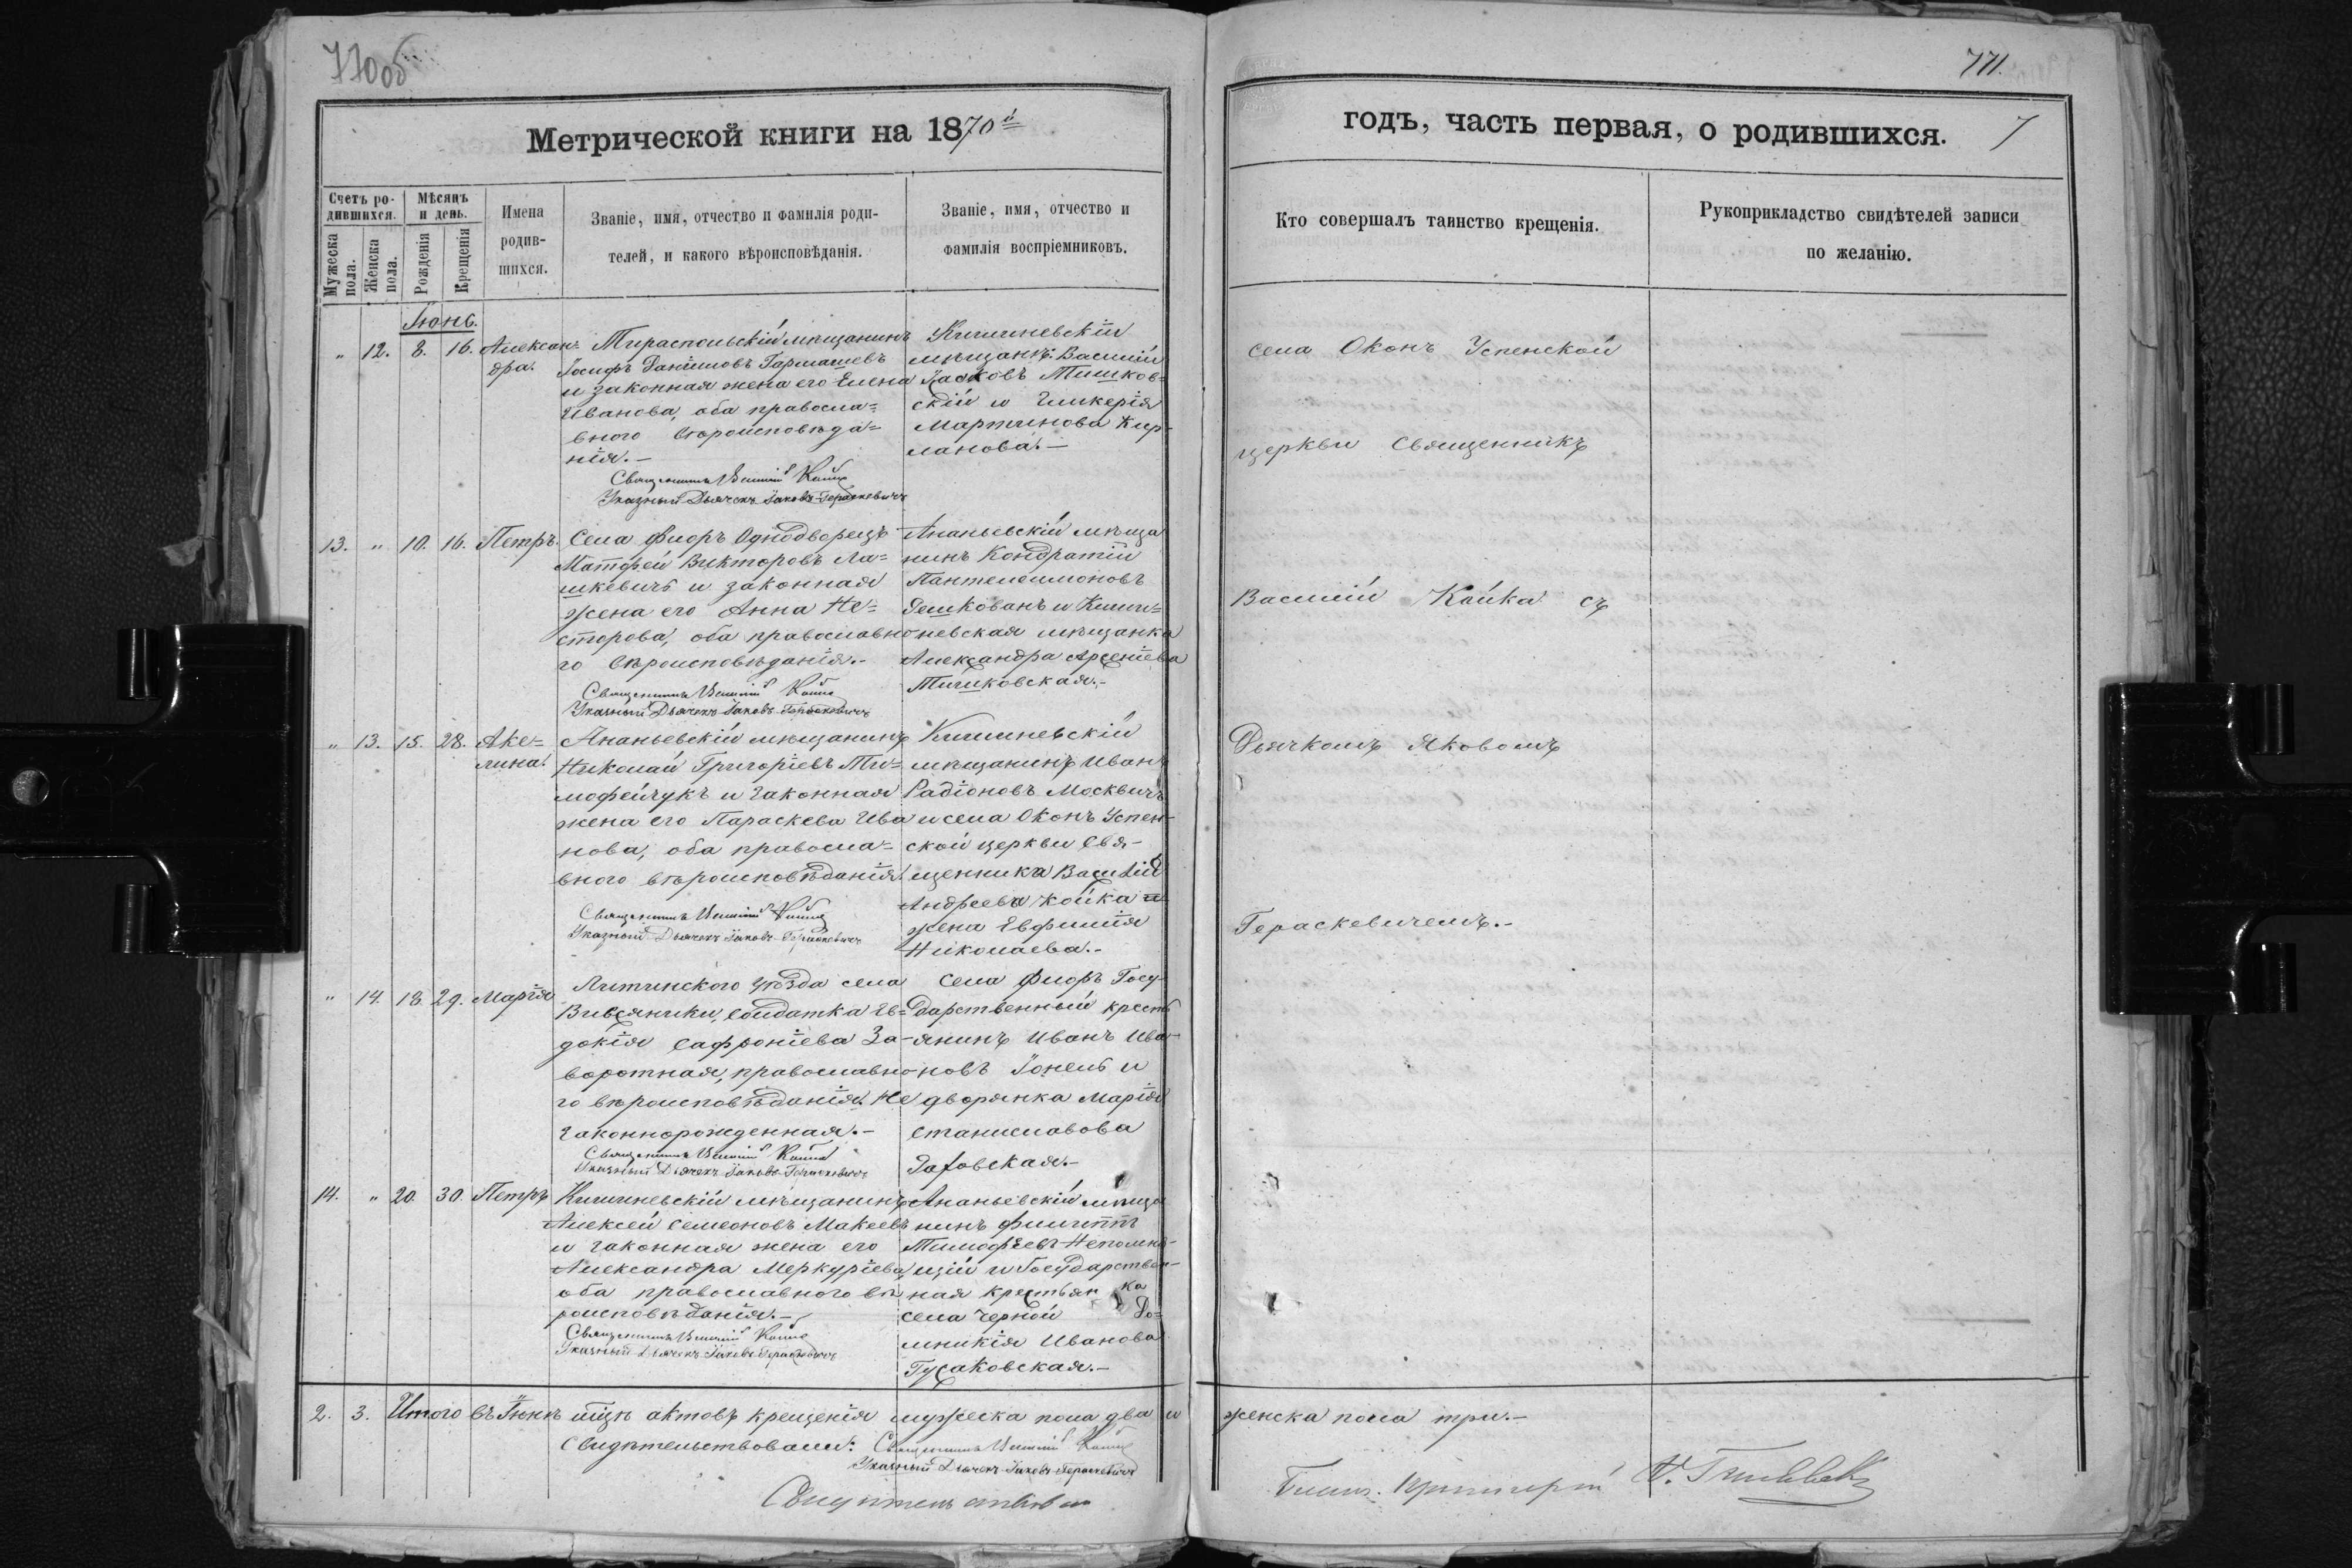 770об
Метрической книги на 1870й
Счетъ ро-
дившихся.
Мѣсяцъ
и день.
Мужеска
пола.
Женска
пола.
Рожденія
Крещенія
Имена
родив-
шихся.
Званіе, имя, отчество и фамилія роди-
телей, и какого вѣроисповѣданія.
Званіе, имя, отчество и
фамилія воспріемниковъ.
Іюнь.
" 12. 8. 16. Алексан=
дра.
Тираспольскій мѣщанинъ
Іосифъ Даніиловъ Гармашевъ
и законная жена его Елена
Иванова, оба правосла=
вного вѣроисповѣда=
нія.–
Священникъ Василій Койка
Указный Дьячекъ Іаковъ Гераскевичъ
Кишиневскій
мѣщанинъ Василій
Іасковъ Тишков=
скій и Гликерія
Мартинова Кир-
ланова.–
13. " 10. 16. Петръ.
Села Флоръ Однодворецъ
Матфей Викторовъ Ла=
шкевичъ и законная
жена его Анна Не=
сторова, оба православно
го вѣроисповѣданія.–
Священникъ Василій Койка
Указный Дьячекъ Іаковъ Гераскевичъ
Ананьевскій мѣща
нинъ Кондратій
Пантелеимоновъ
Гешкованъ и Киши=
невская мѣщанка
Александра Арсеніева
Тишковская.–
" 13. 15. 28. Аке=
лина.
Ананьевскій мѣщанинъ
Николай Григоріевъ Ти=
мофейчукъ и законная
жена его Параскева Ива
нова, оба правосла=
вного вѣроисповѣданія.
Священникъ Василій Койка
Указный Дьячекъ Іаковъ Гераскевичъ
Кишиневскій
мѣщанинъ Иванъ
Радіоновъ Москвичъ
и села Оконъ Успен-
ской церкви Свя-
щенника Василія
Андреева Койка
жена Евфимія
Николаева.–
" 14. 18. 29. Марія
Литинского уѣзда села
Вивсяники, солдатка Ев=
докія Сафроніева За-
воротная, православно
го вѣроисповѣданія. Не
законнорожденная.–
Священникъ Василій Койка
Указный Дьячекъ Іаковъ Гераскевичъ
Села Флоръ Госу-
дарственный кресть
янинъ Иванъ Ива
новъ Іонель и
дворянка Марія
Станиславова
14. " 20. 30. Петръ
Кишиневскій мѣщанинъ
Алексей Семеоновъ Макеевъ
и законная жена его
Александра Меркуріева,
оба православного вѣ
роисповѣданія.–
Священникъ Василій Койка
Указный Дьячекъ Іаковъ Гераскевичъ
Ананьевскій мѣща
нинъ Филиппъ
Тимофѣевъ Непомня-
щій и Государствен-
ная крестьянка
села Черной До=
мникія Иванова
Гусаковская.–
2. 3. Итого въ Іюнѣ мѣсяцѣ актовъ крещенія мужеска пола два и
Свидѣтельствовали: Священникъ Василій Койка
Указный Дьячекъ Іаковъ Гераскевичъ
Свидѣтельствовалъ
771.
годъ, часть первая, о родившихся. 7
Кто совершалъ таинство крещенія.
Рукоприкладство свидѣтелей записи
по желанію.
Села Оконъ Успенской
церкви Священникъ
Василій Койка съ
Дьячкомъ Яковомъ
Гераскевичемъ.–
женска пола три.–